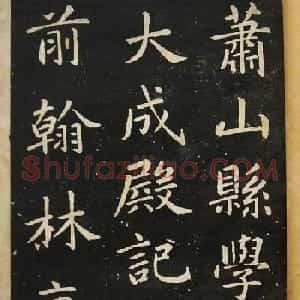 蕭山縣學
大成殿記
前翰林
Shufaziliao.COM